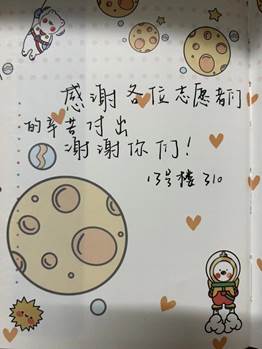 感谢各位志愿者们
的辛苦付出
谢谢你们!
13号楼 310